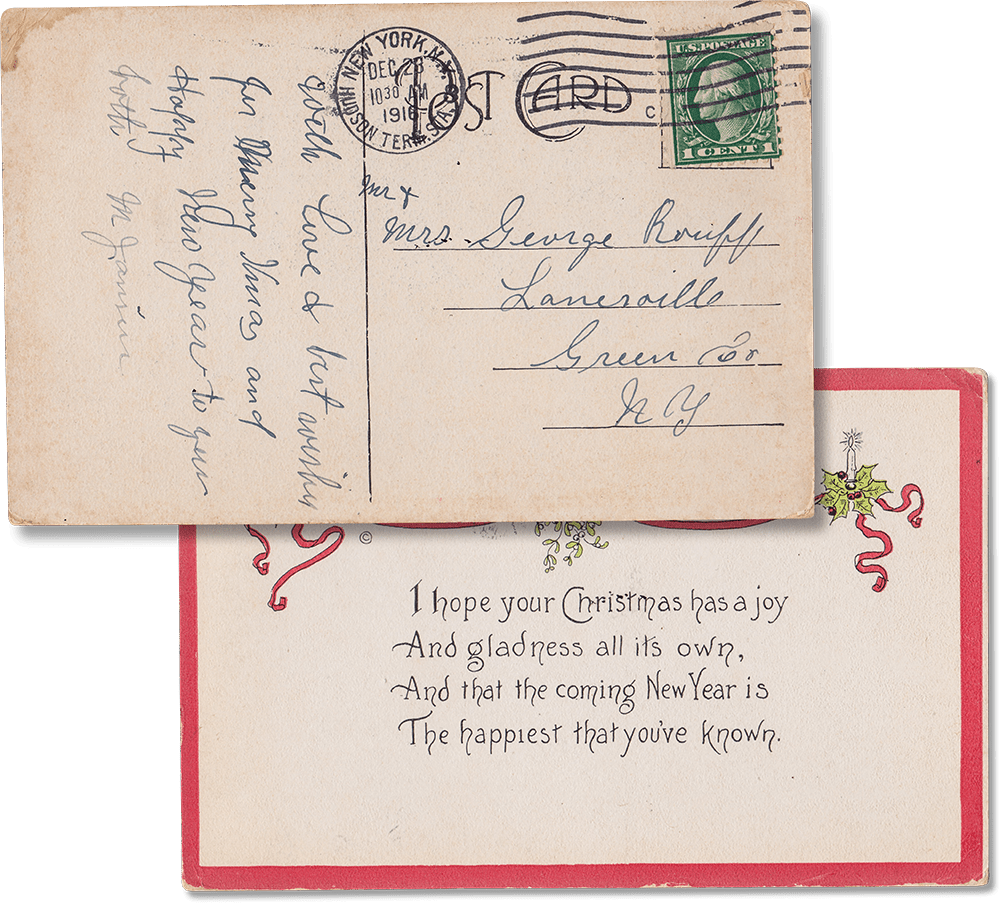 NEW YORK, N.Y.
DEC 23
10 30 AM
1916
HUDSON TERM. STA.
POST CARD
C
U.S. POSTAGE
1 CENT 1
With Love & best wishes
for Merry Xmas and
Happy New Year to you
both M
Mr &
Mrs. George Rouff
Lanesville
Green Co
N Y
©
I hope your Christmas has a joy
And gladness all its own,
And that the coming New Year is
The happiest that you've known.